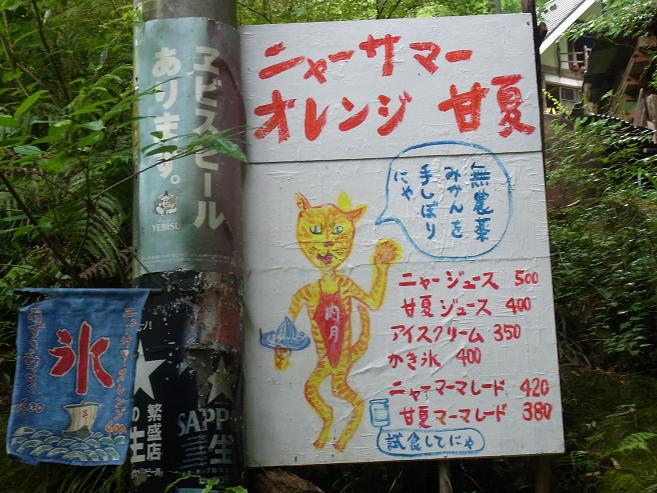 ヱビスビール
あります。
YEBISU
ニャーサマー
オレンジ 甘夏
無農薬
みかんを
手しぼり
にゃ
ニャージュース 500
甘夏ジュース 400
アイスクリーム 350
かき氷 400
ニャーマーマレード 420
甘夏マーマレード 380
試食してにゃ
氷
繁盛店
SAPP
生